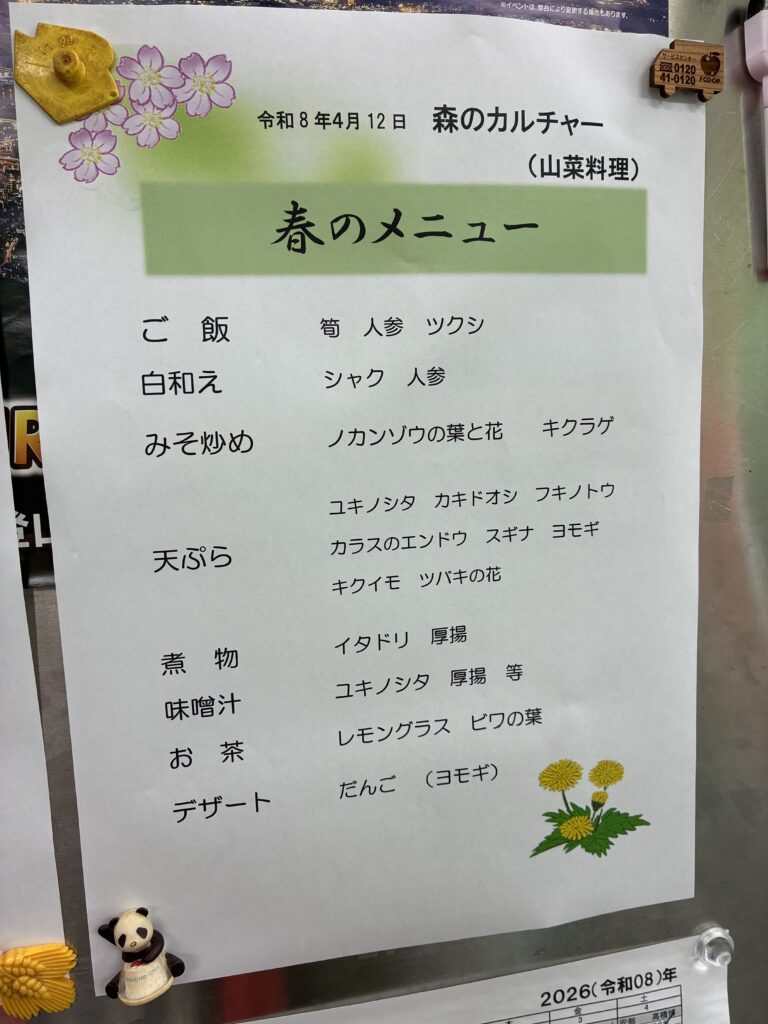 ※イベントは、都合により変更する場合もあります。
サービスセンター
0120
41-0120
FCOOP
令和8年4月12日 森のカルチャー
（山菜料理）
春のメニュー
ご 飯 筍 人参 ツクシ
白和え シャク 人参
みそ炒め ノカンゾウの葉と花 キクラゲ
天ぷら ユキノシタ カキドオシ フキノトウ
カラスのエンドウ スギナ ヨモギ
キクイモ ツバキの花
煮 物 イタドリ 厚揚
味噌汁 ユキノシタ 厚揚 等
お 茶 レモングラス ビワの葉
デザート だんご （ヨモギ）
2026(令和08)年
金 土
3 4